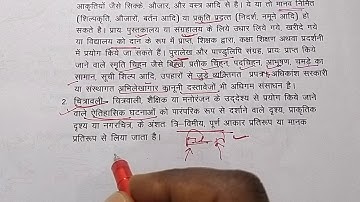 आकृतियाँ जैसे सिक्के, औजार, और वस्त्र आदि से है। ये या तो मानव निर्मित
(शिल्पकृति, औजारों, बर्तन आदि) या प्रकृति प्रदत्त (निदर्श, नमूने आदि) हो
सकते है। प्रायः पुस्तकालय या संग्रहालय के लिये उधार लिये गये, खरीदे गये
या विद्यालय को दान के रूप में प्राप्त, शिक्षक द्वारा, कक्षा शिक्षण अथवा प्रदर्शनी
में प्रयोग किये जा सकते हैं। पुरालेख और पाण्डुलिपि संग्रह, प्रायः प्राप्त किये
जाने वाले स्मृति चिह्न जैसे बिल्ले, प्रतीक चिह्न, पदचिह्न, आभूषण, चमड़े का
सामान, सूची शिल्प आदि, उपहारों से जुड़े व्यक्तिगत प्रपत्र अधिकाश सरकारी
या संस्थागत अभिलेखागार कानूनी दस्तावेजें भी अधिगम संसाधन है।
2. चित्रावली- चित्रावली, शैक्षिक या मनोरंजन के उद्देश्य से प्रयोग किये जाने
वाले ऐतिहासिक घटनाओं को पारंपरिक रूप से दर्शाने वाले दृश्य, प्राकृतिक
दृश्य या नगरचित्र, के अंशत त्रि-विमीय, पूर्ण आकार प्रतिरूप या मानक
प्रतिरूप से लिया जाता है।